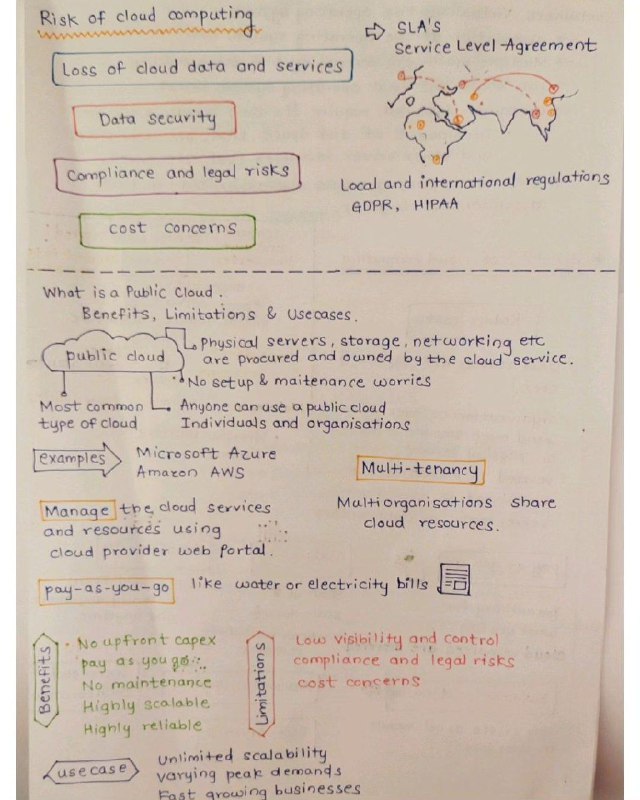 Risk of cloud computing
Loss of cloud data and services
Data security
Compliance and legal risks
cost concerns
⇨ SLA's
Service Level-Agreement
Local and international regulations
GDPR, HIPAA
What is a Public Cloud.
Benefits, Limitations & Usecases.
public cloud
Physical servers, storage, networking etc
are procured and owned by the cloud service.
No setup & maitenance worries
Most common
type of cloud
Anyone can use a public cloud
Individuals and organisations
examples
Microsoft Azure
Amazon AWS
Multi-tenancy
Multiorganisations share
cloud resources.
Manage the cloud services
and resources using
cloud provider web portal.
pay-as-you-go like water or electricity bills
Benefits
• No upfront capex
pay as you go
No maintenance
Highly scalable
Highly reliable
Limitations
Low visibility and control
compliance and legal risks
cost concerns
usecase
Unlimited scalability
varying peak demands
Fast growing businesses